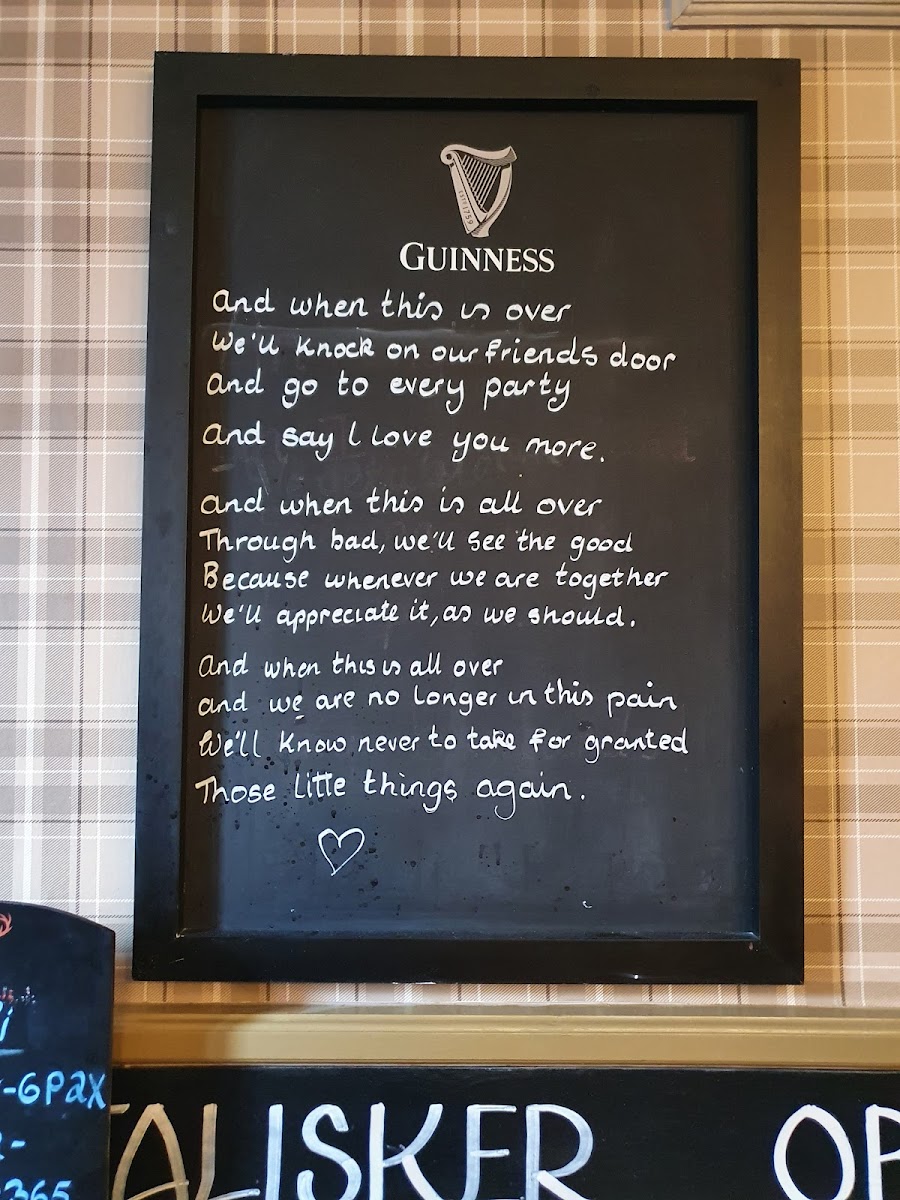 GUINNESS
And when this is over
We'll knock on our friends door
And go to every party
And say I love you more.
And when this is all over
Through bad, we'll see the good
Because whenever we are together
We'll appreciate it, as we should.
And when this is all over
and we are no longer in this pain
We'll know never to take for granted
Those little things again.
-6pax
TALISKER
OP
365